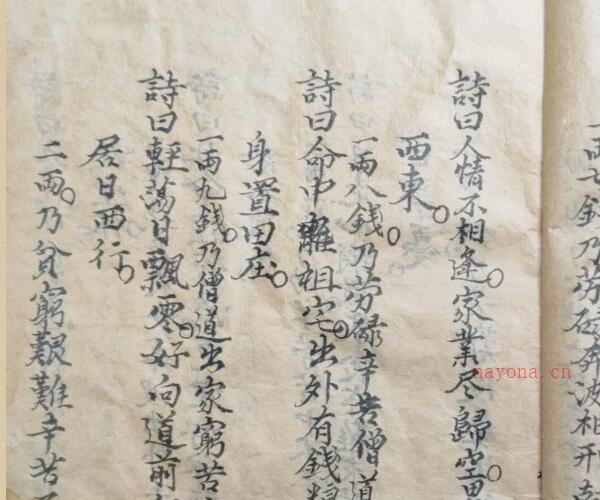 一兩七錢乃勞碌奔波相刑
詩曰人情不相逢。家業尽歸空。
西東。
一兩八錢。乃勞碌辛苦僧道
詩曰命中離祖宅。出外有錢糧
身置田庄。
一兩九錢。乃僧道出家窮苦
詩曰輕蕩日飄零。好向道前
居日西行。
二兩。乃貧窮艱難辛苦
nayona.cn